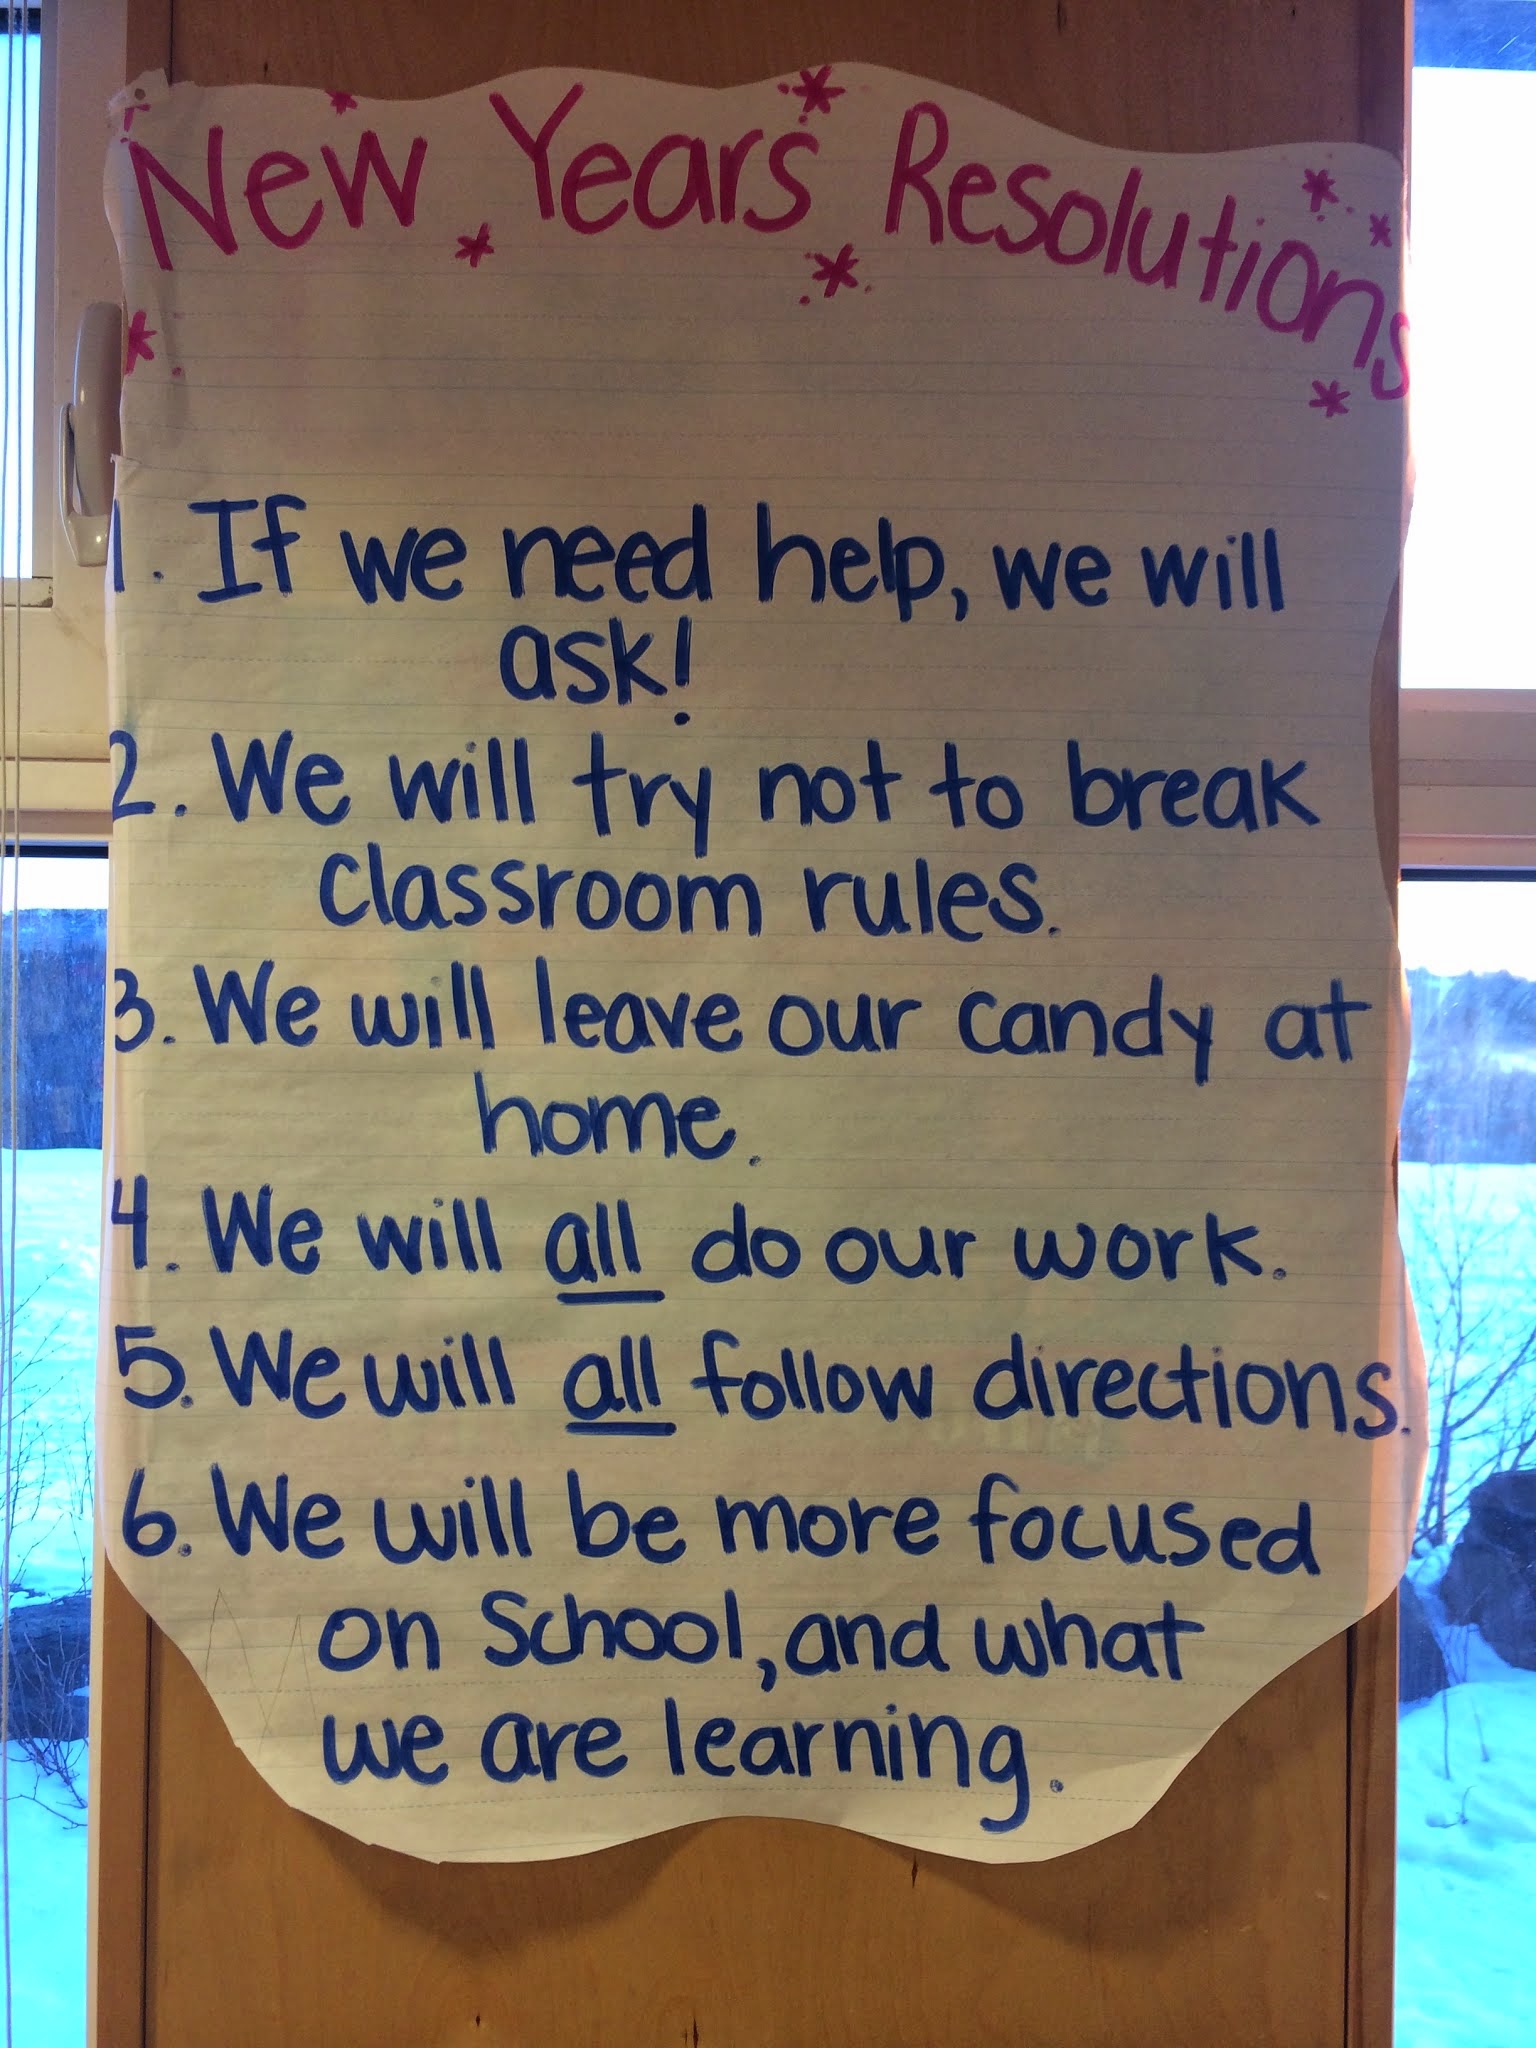 New Years Resolutions
1. If we need help, we will
ask!
2. We will try not to break
classroom rules.
3. We will leave our candy at
home.
4. We will all do our work.
5. We will all follow directions.
6. We will be more focused
on School, and what
we are learning.